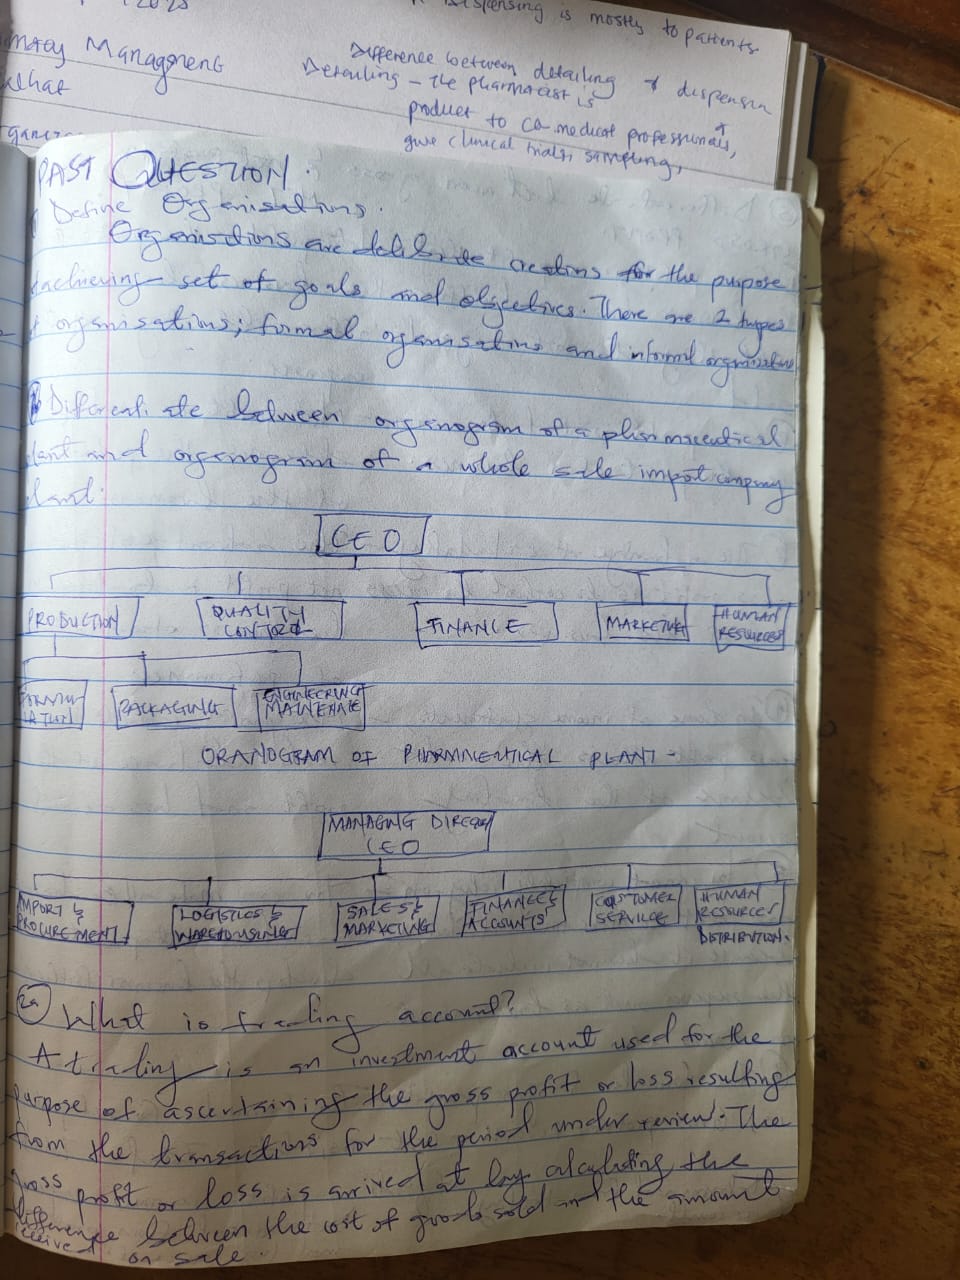 2025
Dispensing is mostly to patients
Management
what
Difference between detailing & dispensin
Detailing – the pharmacist is
product to co-medical professionals,
give clinical trials, sampling,
PAST QUESTION.
Define Organisations.
Organisations are deliberate creations for the purpose
achieving set of goals and objectives. There are 2 types
organisations; formal organisations and informal organisations
Differentiate between organogram of a pharmaceutical
plant and organogram of a whole sale import company
plant.
CEO
PRODUCTION
QUALITY CONTROL
FINANCE
MARKETING
HUMAN RESOURCES
PACKAGING
ENGINEERING MAINTENANCE
ORANOGRAM OF PHARMACEUTICAL PLANT -
MANAGING DIRECTOR
CEO
IMPORT & PROCUREMENT
LOGISTICS & WAREHOUSING
SALES & MARKETING
FINANCE & ACCOUNTS
CUSTOMER SERVICE
HUMAN RESOURCES
DISTRIBUTION.
2a What is trading account?
A trading is an investment account used for the
purpose of ascertaining the gross profit or loss resulting
from the transactions for the period under review. The
gross profit or loss is arrived at by calculating the
difference between the cost of goods sold and the amount
received on sale.